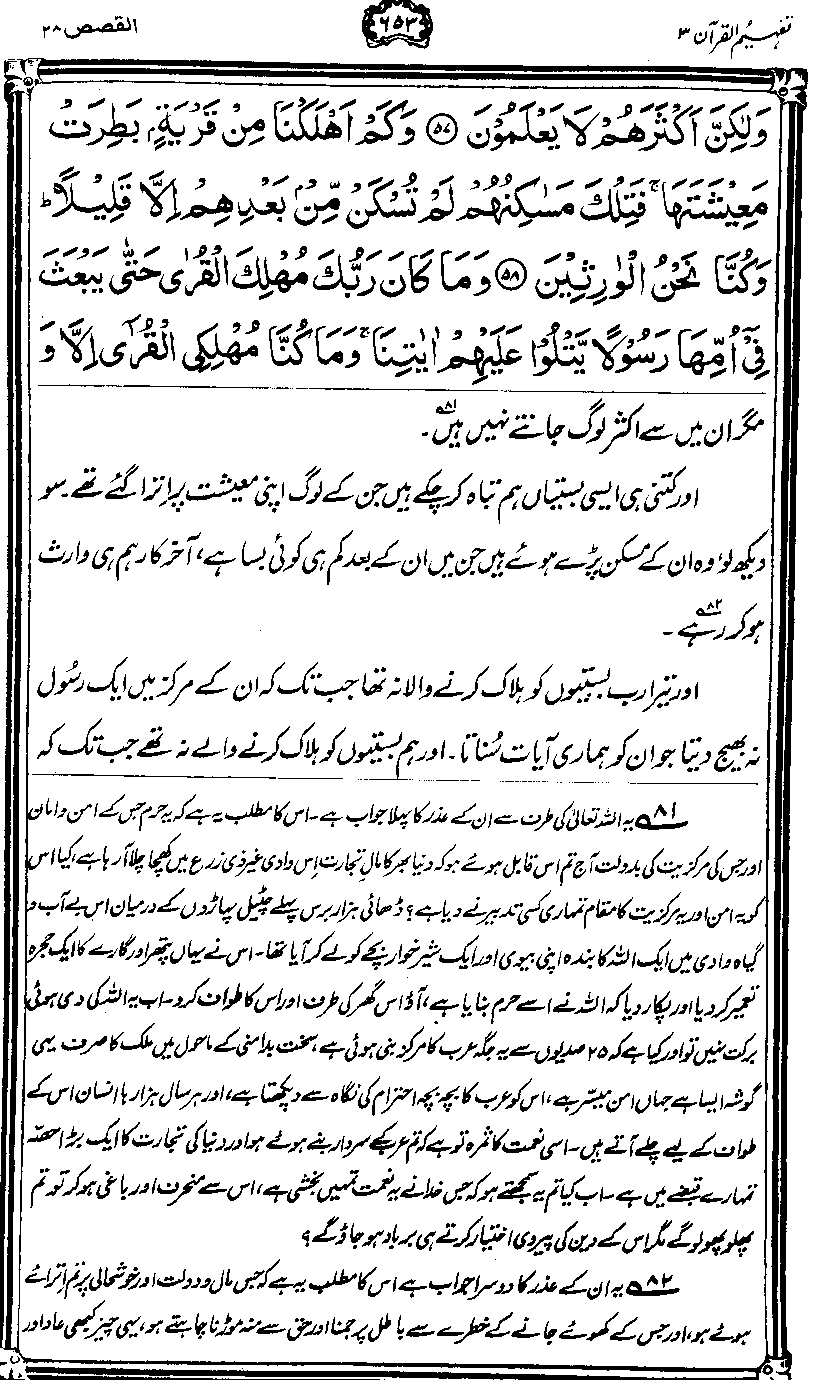 تفہیم القرآن ۳
۶۵۳
القصص ۲۸
وَلٰكِنَّ اَكْثَرَهُمْ لَا يَعْلَمُوْنَ ﴿۵۷﴾ وَكَمْ اَهْلَكْنَا مِنْ قَرْيَةٍۭ بَطِرَتْ
مَعِيْشَتَهَا ۚ فَتِلْكَ مَسٰكِنُهُمْ لَمْ تُسْكَنْ مِّنْۢ بَعْدِهِمْ اِلَّا قَلِيْلًا ؕ
وَكُنَّا نَحْنُ الْوٰرِثِيْنَ ﴿۵۸﴾ وَمَا كَانَ رَبُّكَ مُهْلِكَ الْقُرٰى حَتّٰى يَبْعَثَ
فِيْۤ اُمِّهَا رَسُوْلًا يَّتْلُوْا عَلَيْهِمْ اٰيٰتِنَا ۚ وَمَا كُنَّا مُهْلِكِى الْقُرٰٓى اِلَّا وَ
مگر ان میں سے اکثر لوگ جانتے نہیں ہیں۸۱۔
اور کتنی ہی ایسی بستیاں ہم تباہ کر چکے ہیں جن کے لوگ اپنی معیشت پر اِترا گئے تھے۔ سو
دیکھ لو، وہ ان کے مسکن پڑے ہوئے ہیں جن میں ان کے بعد کم ہی کوئی بسا ہے، آخرکار ہم ہی وارث
ہو کر رہے۸۲۔
اور تیرا رب بستیوں کو ہلاک کرنے والا نہ تھا جب تک کہ ان کے مرکز میں ایک رسُول
نہ بھیج دیتا جو ان کو ہماری آیات سُناتا۔ اور ہم بستیوں کو ہلاک کرنے والے نہ تھے جب تک کہ
۸۱ یہ اللہ تعالیٰ کی طرف سے ان کے عذر کا پہلا جواب ہے۔ اس کا مطلب یہ ہے کہ یہ حرم جس کے امن و امان
اور جس کی مرکزیت کی بدولت آج تم اس قابل ہوئے ہو کہ دنیا بھر کا مالِ تجارت اِس وادی غیر ذی زرع میں کھچا چلا آ رہا ہے، کیا اس
کو یہ امن اور یہ مرکزیت کا مقام تمہاری کسی تدبیر نے دیا ہے؟ ڈھائی ہزار برس پہلے چٹیل پہاڑوں کے درمیان اس بے آب و
گیاہ وادی میں ایک اللہ کا بندہ اپنی بیوی اور ایک شیر خوار بچے کو لے کر آیا تھا۔ اس نے یہاں پتھر اور گارے کا ایک حجرہ
تعمیر کر دیا اور پکار دیا کہ اللہ نے اسے حرم بنایا ہے، آؤ اس گھر کی طرف اور اس کا طواف کرو۔ اب یہ اللہ کی دی ہوئی
برکت نہیں تو اور کیا ہے کہ ۲۵ صدیوں سے یہ جگہ عرب کا مرکز بنی ہوئی ہے، سخت بدامنی کے ماحول میں ملک کا صرف یہی
گوشہ ایسا ہے جہاں امن میسّر ہے، اس کو عرب کا بچہ بچہ احترام کی نگاہ سے دیکھتا ہے، اور ہر سال ہزارہا انسان اس کے
طواف کے لیے چلے آتے ہیں۔ اسی نعمت کا ثمرہ تو ہے کہ تم عرب کے سردار بنے ہوئے ہو اور دنیا کی تجارت کا ایک بڑا حصّہ
تمہارے قبضے میں ہے۔ اب کیا تم یہ سمجھتے ہو کہ جس خدا نے یہ نعمت تمہیں بخشی ہے، اس سے منحرف اور باغی ہو کر تو تم
پھلو پھولو گے مگر اس کے دین کی پیروی اختیار کرتے ہی برباد ہو جاؤ گے؟
۸۲ یہ ان کے عذر کا دوسرا جواب ہے اس کا مطلب یہ ہے کہ جس مال و دولت اور خوشحالی پر تم اترائے
ہوئے ہو، اور جس کے کھوئے جانے کے خطرے سے باطل پر جمنا اور حق سے منہ موڑنا چاہتے ہو، یہی چیز کبھی عاد اور